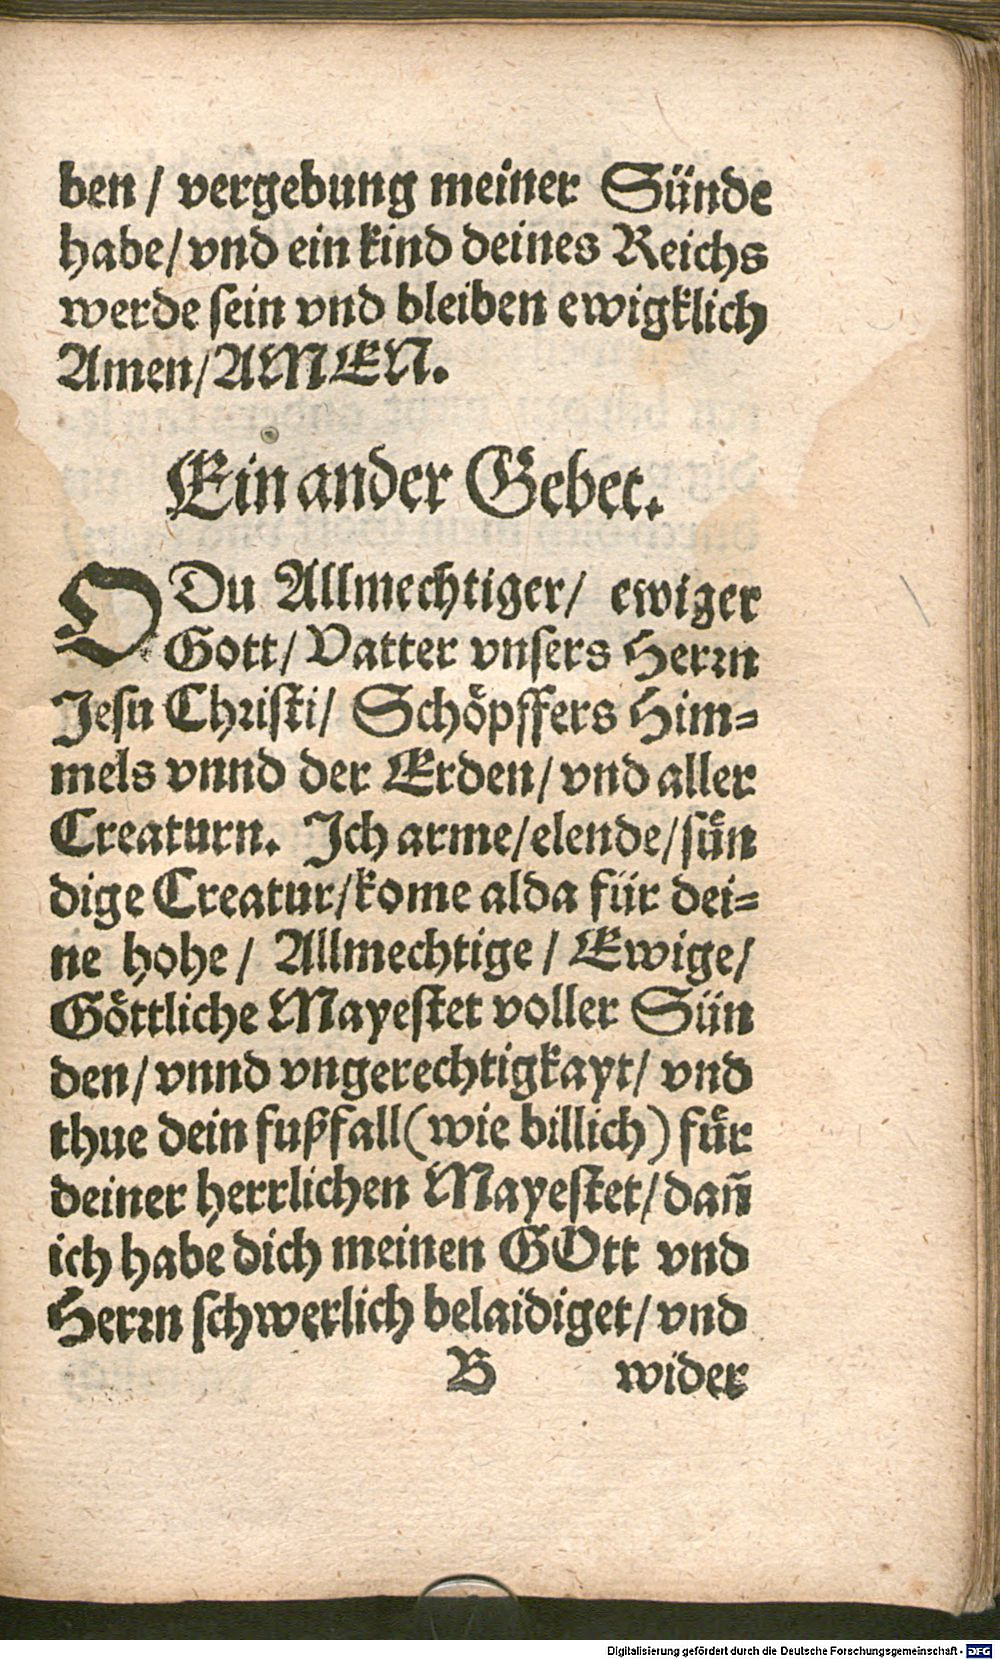 ben / vergebung meiner Sünde
habe / vnd ein kind deines Reichs
werde sein vnd bleiben ewigklich
Amen / AMEN.
Ein ander Gebet.
O Du Allmechtiger / ewiger
Gott / Vatter vnsers Herrn
Jesu Christi / Schöpffers Him=
mels vnnd der Erden / vnd aller
Creaturn. Ich arme / elende / sün
dige Creatur / kome alda für dei=
ne hohe / Allmechtige / Ewige /
Göttliche Mayestet voller Sün
den / vnnd vngerechtigkayt / vnd
thue dein fußfall (wie billich) für
deiner herrlichen Mayestet / dañ
ich habe dich meinen GOtt vnd
Herrn schwerlich belaidiget / vnd
B wider
Digitalisierung gefördert durch die Deutsche Forschungsgemeinschaft - DFG